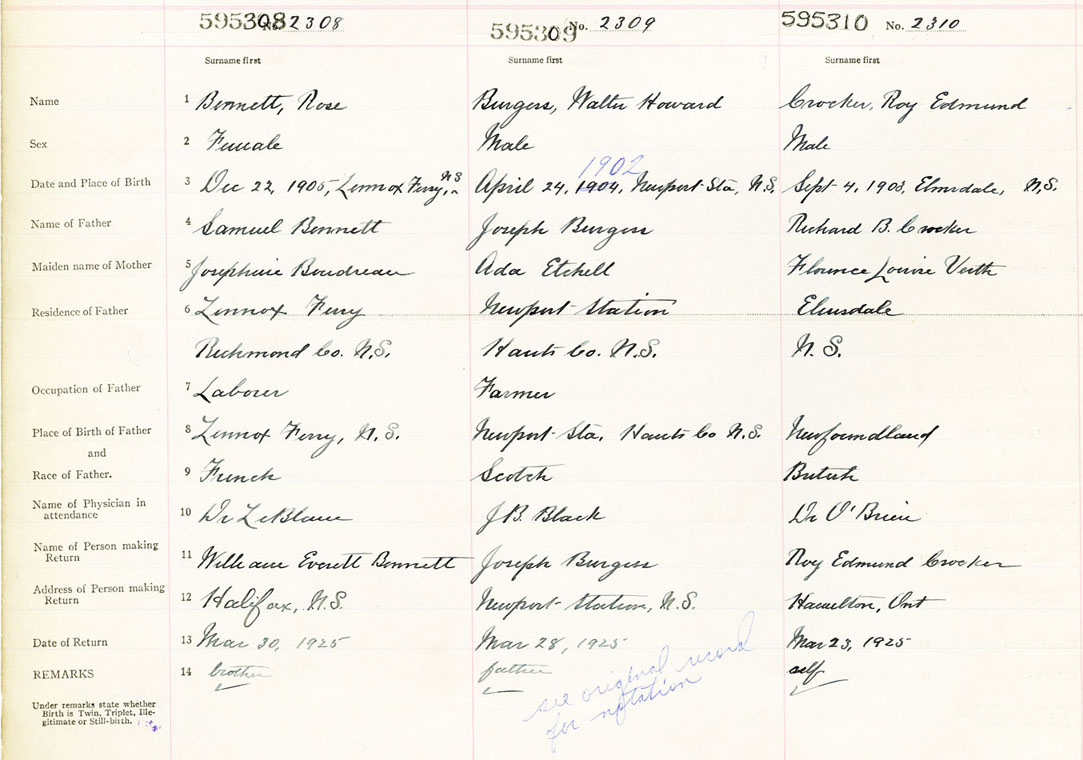 595308 No. 2308
595309 No. 2309
595310 No. 2310
Surname first Surname first Surname first
Name 1 Bennett, Rose Burgess, Walter Howard Crocker, Roy Edmund
Sex 2 Female Male Male
1902
Date and Place of Birth 3 Dec 22, 1905, Lennox Ferry, N.S. April 24, 1904, Newport Sta, N.S. Sept 4, 1903, Elmsdale, N.S.
Name of Father 4 Samuel Bennett Joseph Burgess Richard B. Crocker
Maiden name of Mother 5 Josephine Boudreau Ada Etchell Florence Louise Veith
Residence of Father 6 Lennox Ferry Newport Station Elmsdale
Richmond Co. N.S. Hants Co. N.S. N.S.
Occupation of Father 7 Laborer Farmer
Place of Birth of Father 8 Lennox Ferry, N.S. Newport Sta. Hants Co N.S. Newfoundland
and
Race of Father. 9 French Scotch British
Name of Physician in
attendance 10 Dr LeBlanc J B. Black Dr O'Brien
Name of Person making
Return 11 William Everett Bennett Joseph Burgess Roy Edmund Crocker
Address of Person making
Return 12 Halifax, N.S. Newport Station, N.S. Hamilton, Ont
Date of Return 13 Mar 30, 1925 Mar 28, 1925 Mar 23, 1925
REMARKS 14 brother father self
see original record
for notation
Under remarks state whether
Birth is Twin, Triplet, Ille-
gitimate or Still-birth.